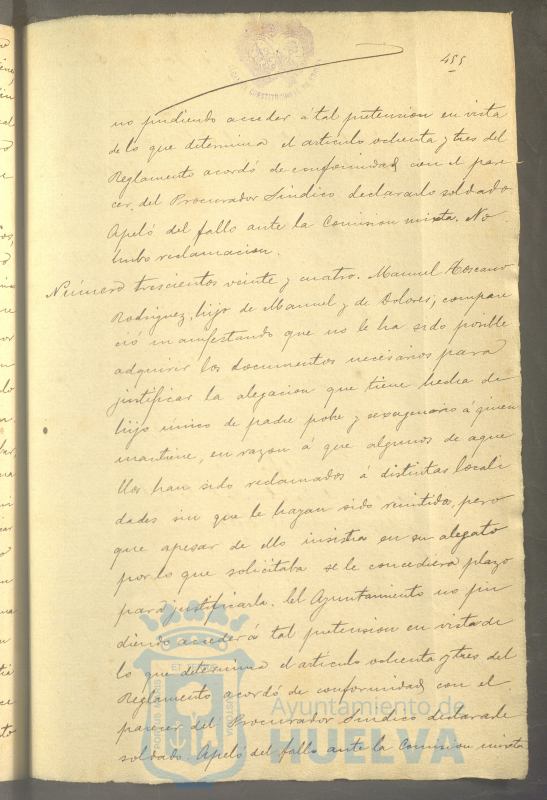 455
no pudiendo acceder á tal pretension en vista
de lo que determina el articulo ochenta y tres del
Reglamento acordó de conformidad con el pare-
cer del Procurador Sindico declararlo soldado
Apeló del fallo ante la Comision mixta. No
hubo reclamacion.
Número trescientos veinte y cuatro. Manuel Toscano
Rodriguez, hijo de Manuel y de Dolores; compare
ció manifestando que no le ha sido posible
adquirir los documentos necesarios para
justificar la alegacion que tiene hecha de
hijo único de padre pobre y sexagenario á quien
mantiene, en razon á que algunos de aque
llos han sido reclamados á distintas locali
dades sin que le hayan sido remitido, pero
que apesar de ello insistia en su alegato
por lo que solicitaba se le concediera plazo
para justificarla. El Ayuntamiento no pu
diendo acceder á tal pretension en vista de
lo que determina el articulo ochenta y tres del
Reglamento acordó de conformidad con el
parecer del Procurador Sindico declararle
soldado. Apeló del fallo ante la Comision mixta
Ayuntamiento de
HUELVA